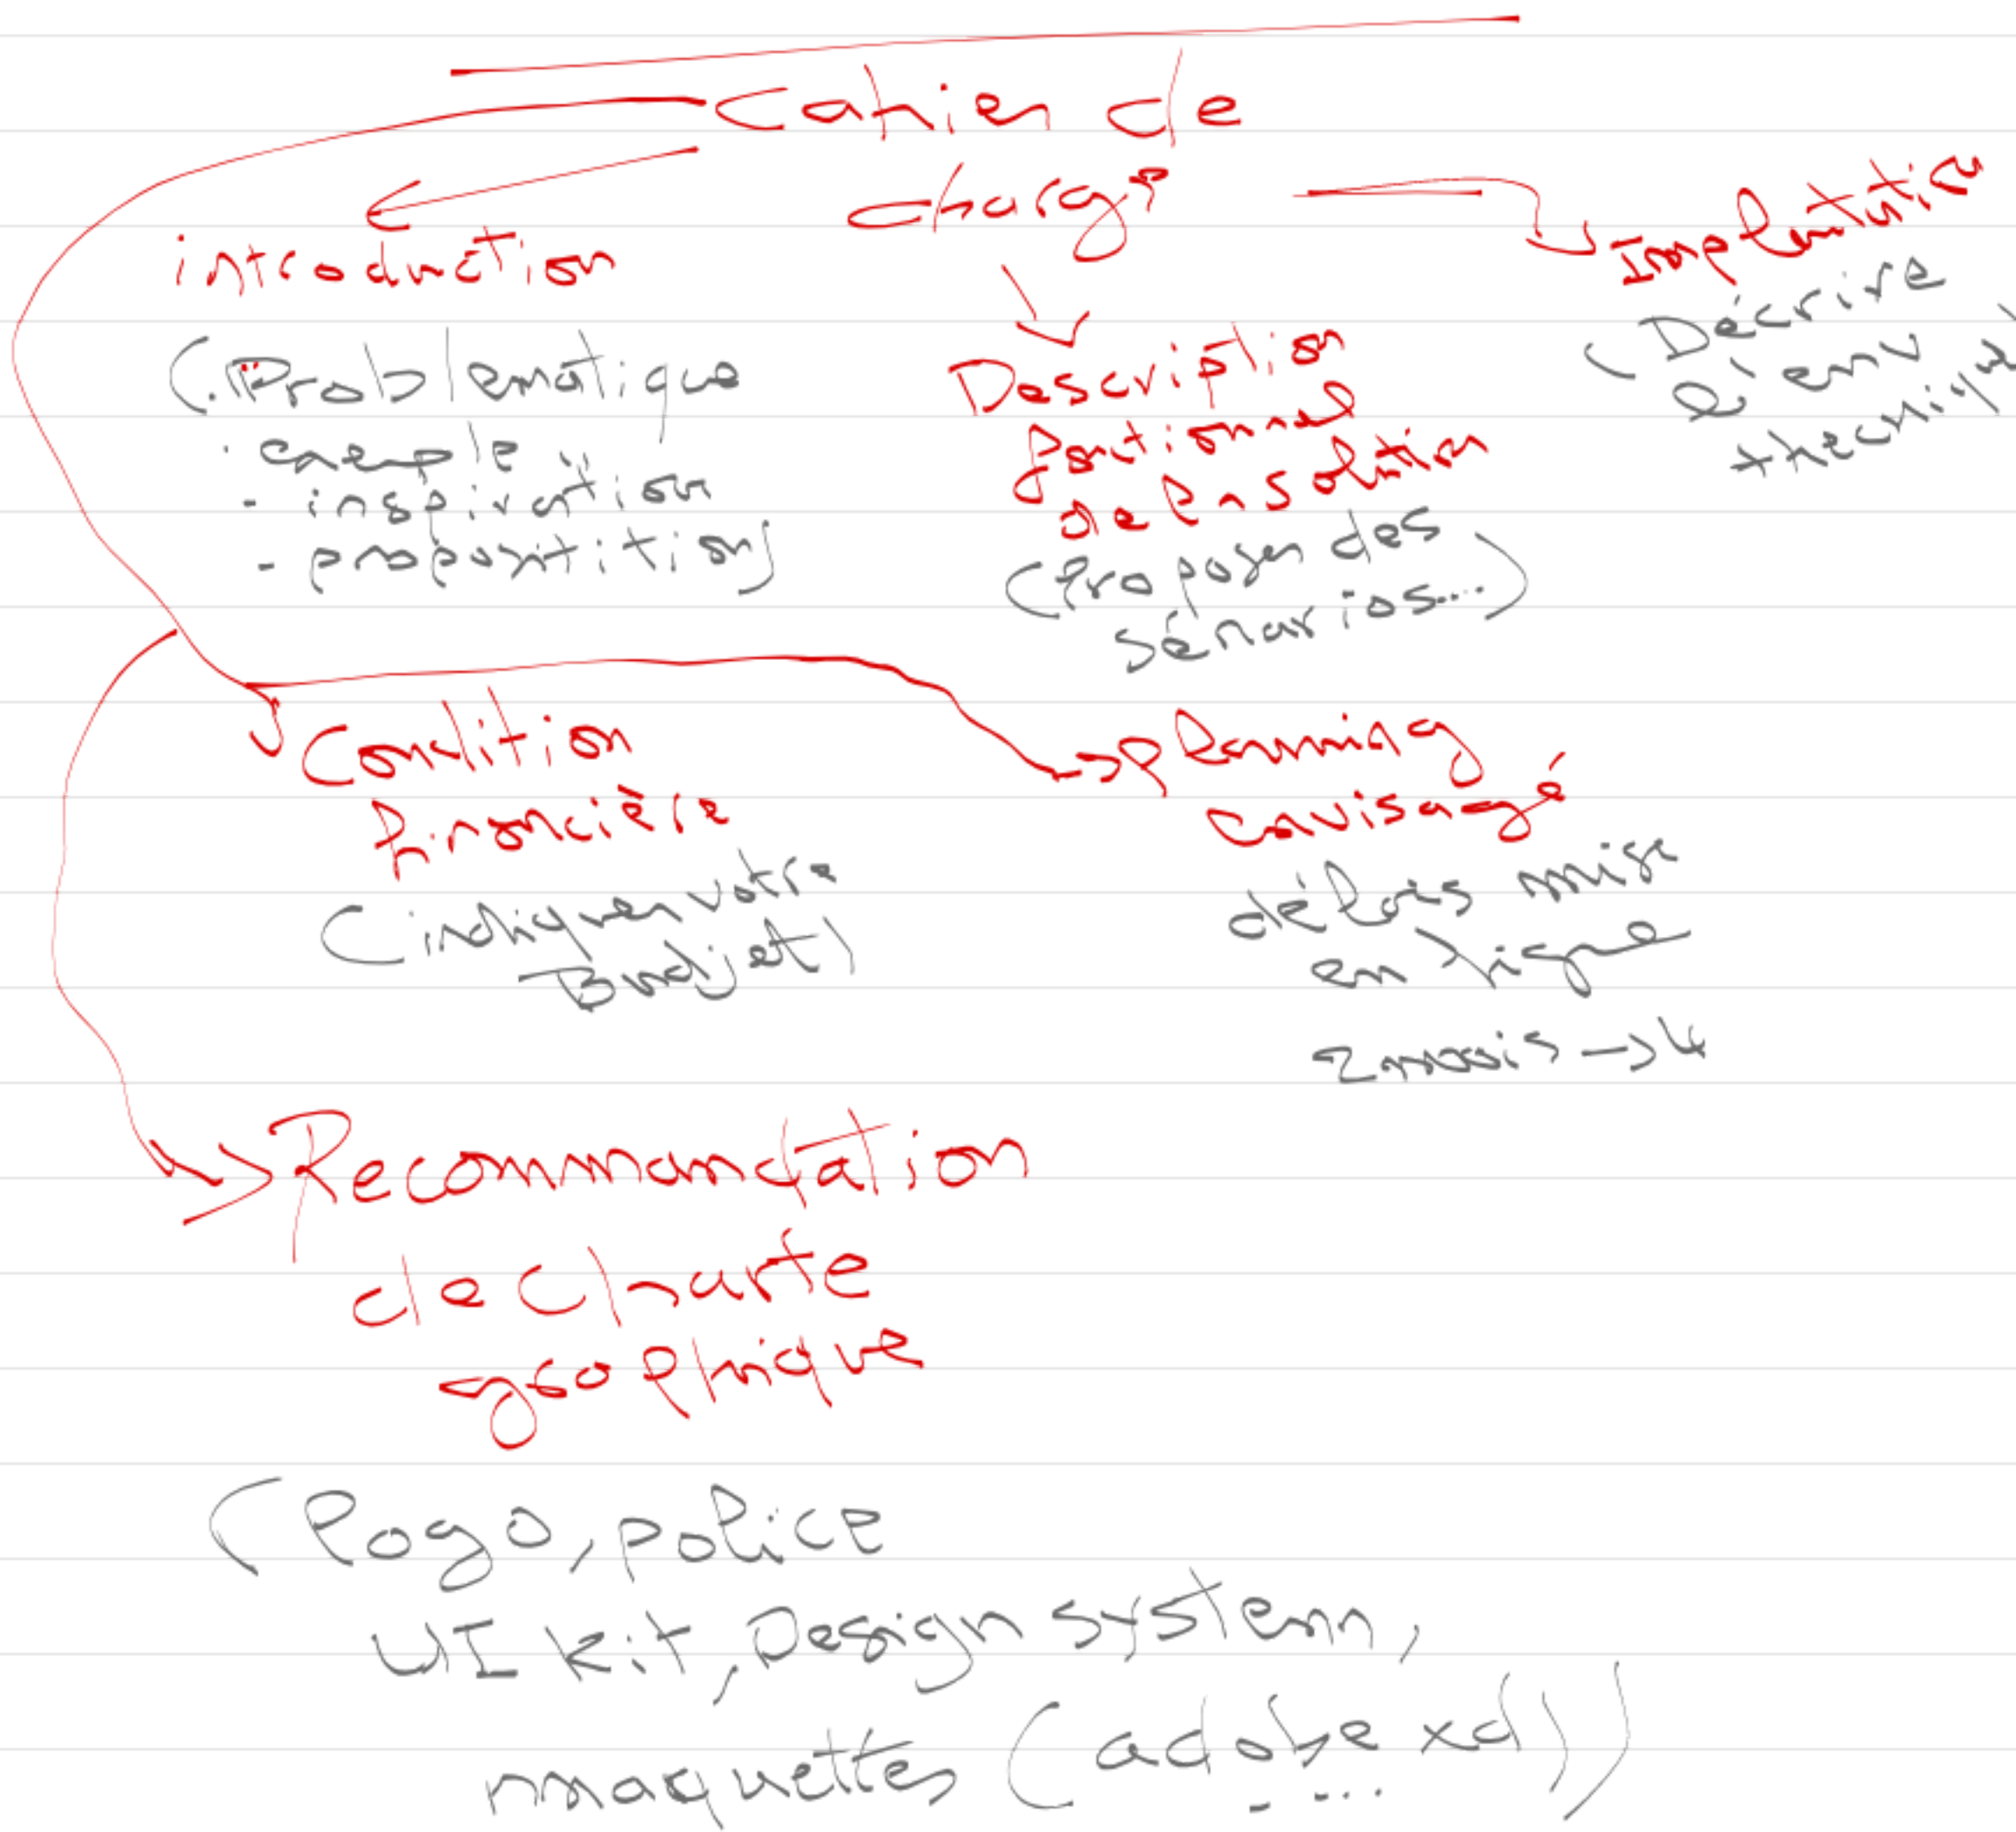 Cahier de
charge
introduction
(. Problematique
. exemple
- inspiration
- propostition)
Description
fonctionnel
de la solution
(Proposer des
sénarios...)
Implentation
(Décrire
l'env
Condition
financière
(indiquer votre
Budjet)
planning
envisagé
délais mise
en ligne
2 mois -> 4
Recommandation
de charte
graphique
(logo, police
UI kit, Design system,
maquettes (adobe xd))
- ...